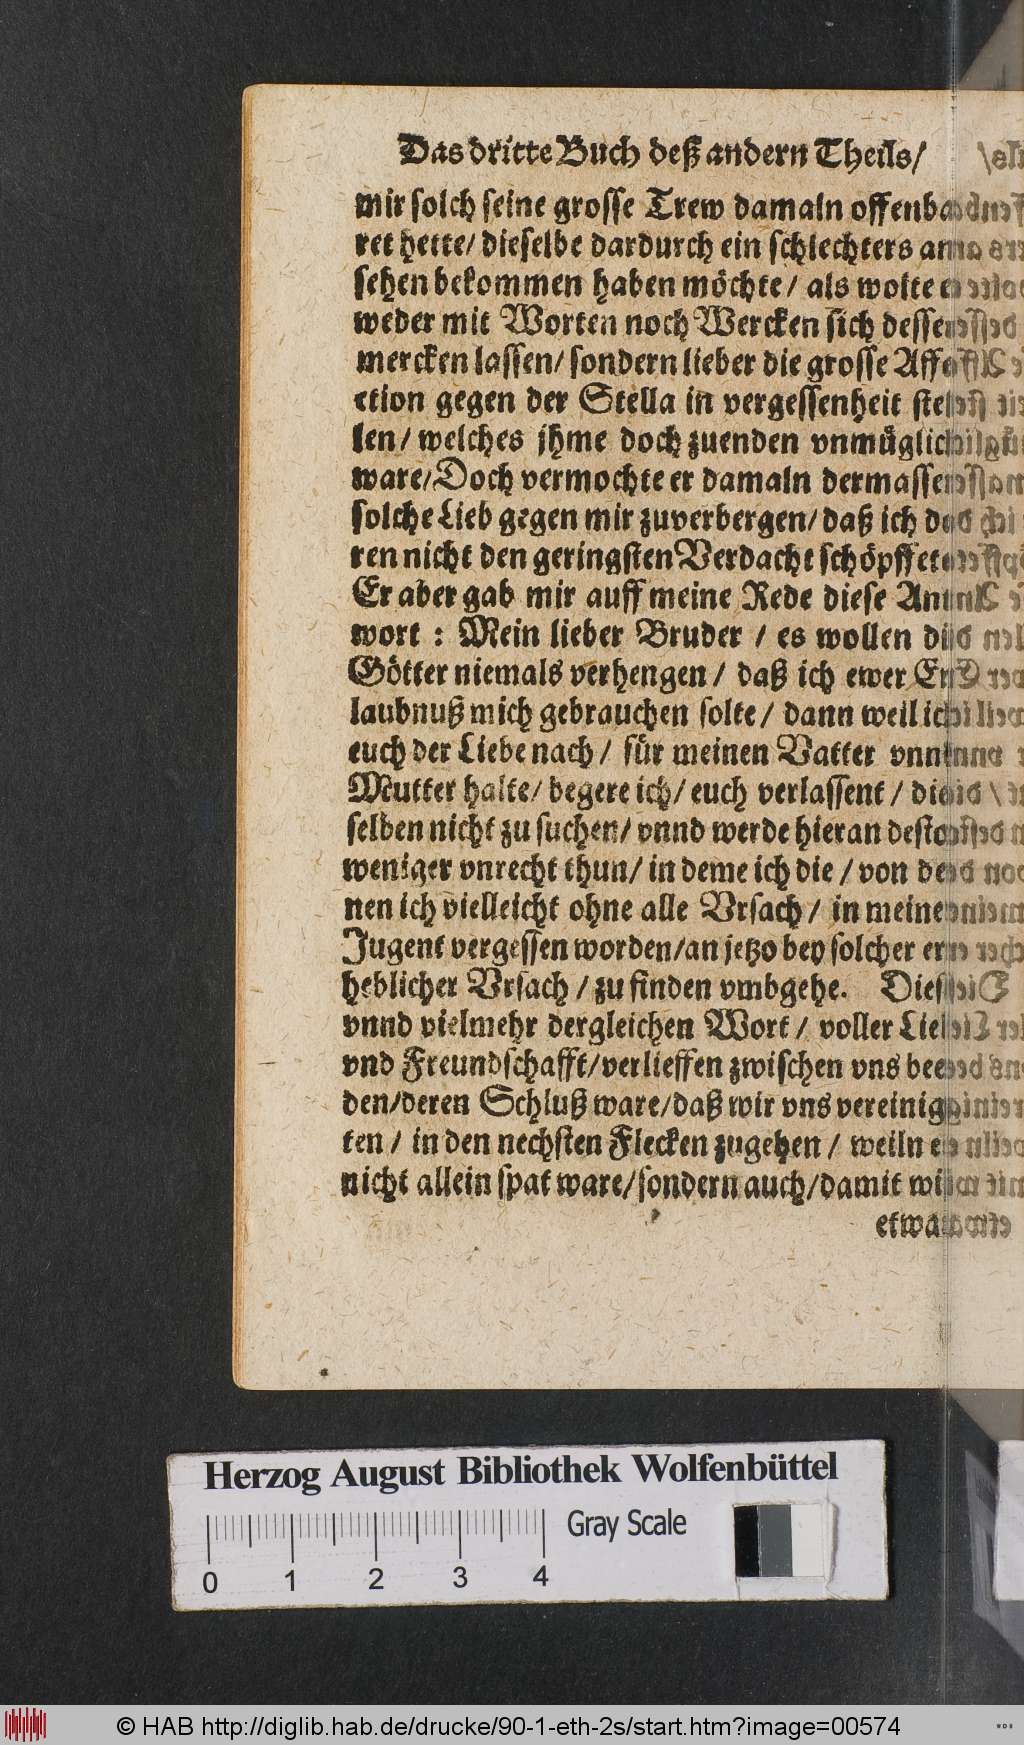 Das dritte Buch deß andern Theils/
mir solch seine grosse Trew damaln offenba-
ret hette/ dieselbe dardurch ein schlechters an-
sehen bekommen haben möchte/ als wolte er
weder mit Worten noch Wercken sich dessen
mercken lassen/ sondern lieber die grosse Affe-
ction gegen der Stella in vergessenheit stel-
len/ welches jhme doch zuenden vnmüglich
ware/ Doch vermochte er damaln dermassen
solche Lieb gegen mir zuverbergen/ daß ich da-
ren nicht den geringsten Verdacht schöpffete.
Er aber gab mir auff meine Rede diese Ant-
wort : Mein lieber Bruder / es wollen die
Götter niemals verhengen / daß ich ewer Er-
laubnuß mich gebrauchen solte / dann weil ich
euch der Liebe nach / für meinen Vatter vnnd
Mutter halte/ begere ich/ euch verlassent / die-
selben nicht zu suchen/ vnnd werde hieran desto
weniger vnrecht thun/ in deme ich die / von de-
nen ich vielleicht ohne alle Vrsach / in meiner
Jugent vergessen worden/an jetzo bey solcher er-
heblicher Vrsach / zu finden vmbgehe. Diese
vnnd vielmehr dergleichen Wort / voller Lieb
vnd Freundschafft/verlieffen zwischen vns bee-
den/deren Schluß ware/daß wir vns vereinig-
ten / in den nechsten Flecken zugehen / weiln es
nicht allein spat ware/sondern auch/damit wir
etwa
Herzog August Bibliothek Wolfenbüttel
Gray Scale
0 1 2 3 4
© HAB http://diglib.hab.de/drucke/90-1-eth-2s/start.htm?image=00574